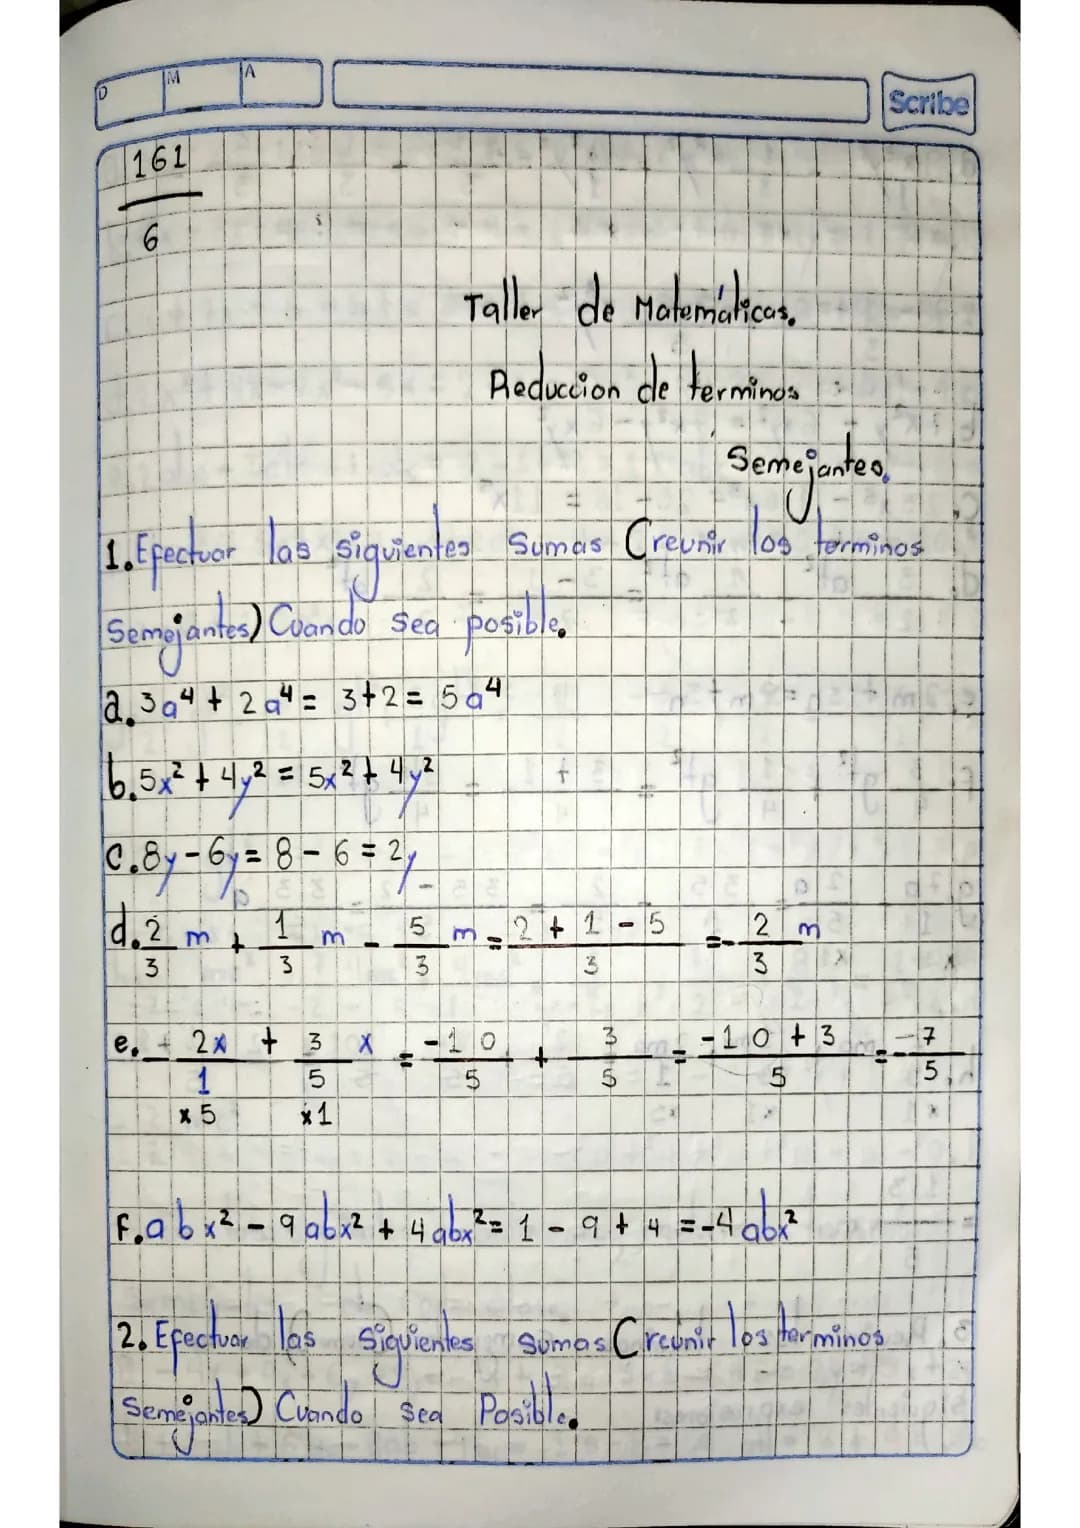 D M A
Scribe
161
6
Taller de Matemáticas.
Reduccion de terminos
Semejantes.
1. Efectuar las siguientes Sumas (reunir los terminos
Semejantes) Cuando sea posible.
a. 3a⁴ + 2a⁴ = 3+2 = 5a⁴
b. 5x² + 4y² = 5x² + 4y²
c. 8y - 6y = 8 - 6 = 2y
d. 2/3 m + 1/3 m - 5/3 m = 2 + 1 - 5/3 = - 2/3 m
e. - 2x/1 + 3/5 x = -10/5 + 3/5 = -10 + 3/5 = - -7/5
x5 x1
F. abx² - 9abx² + 4abx² = 1 - 9 + 4 = -4abx²
2. Efectuar las siguientes sumas (reunir los terminos
Semejantes) Cuando sea Posible.